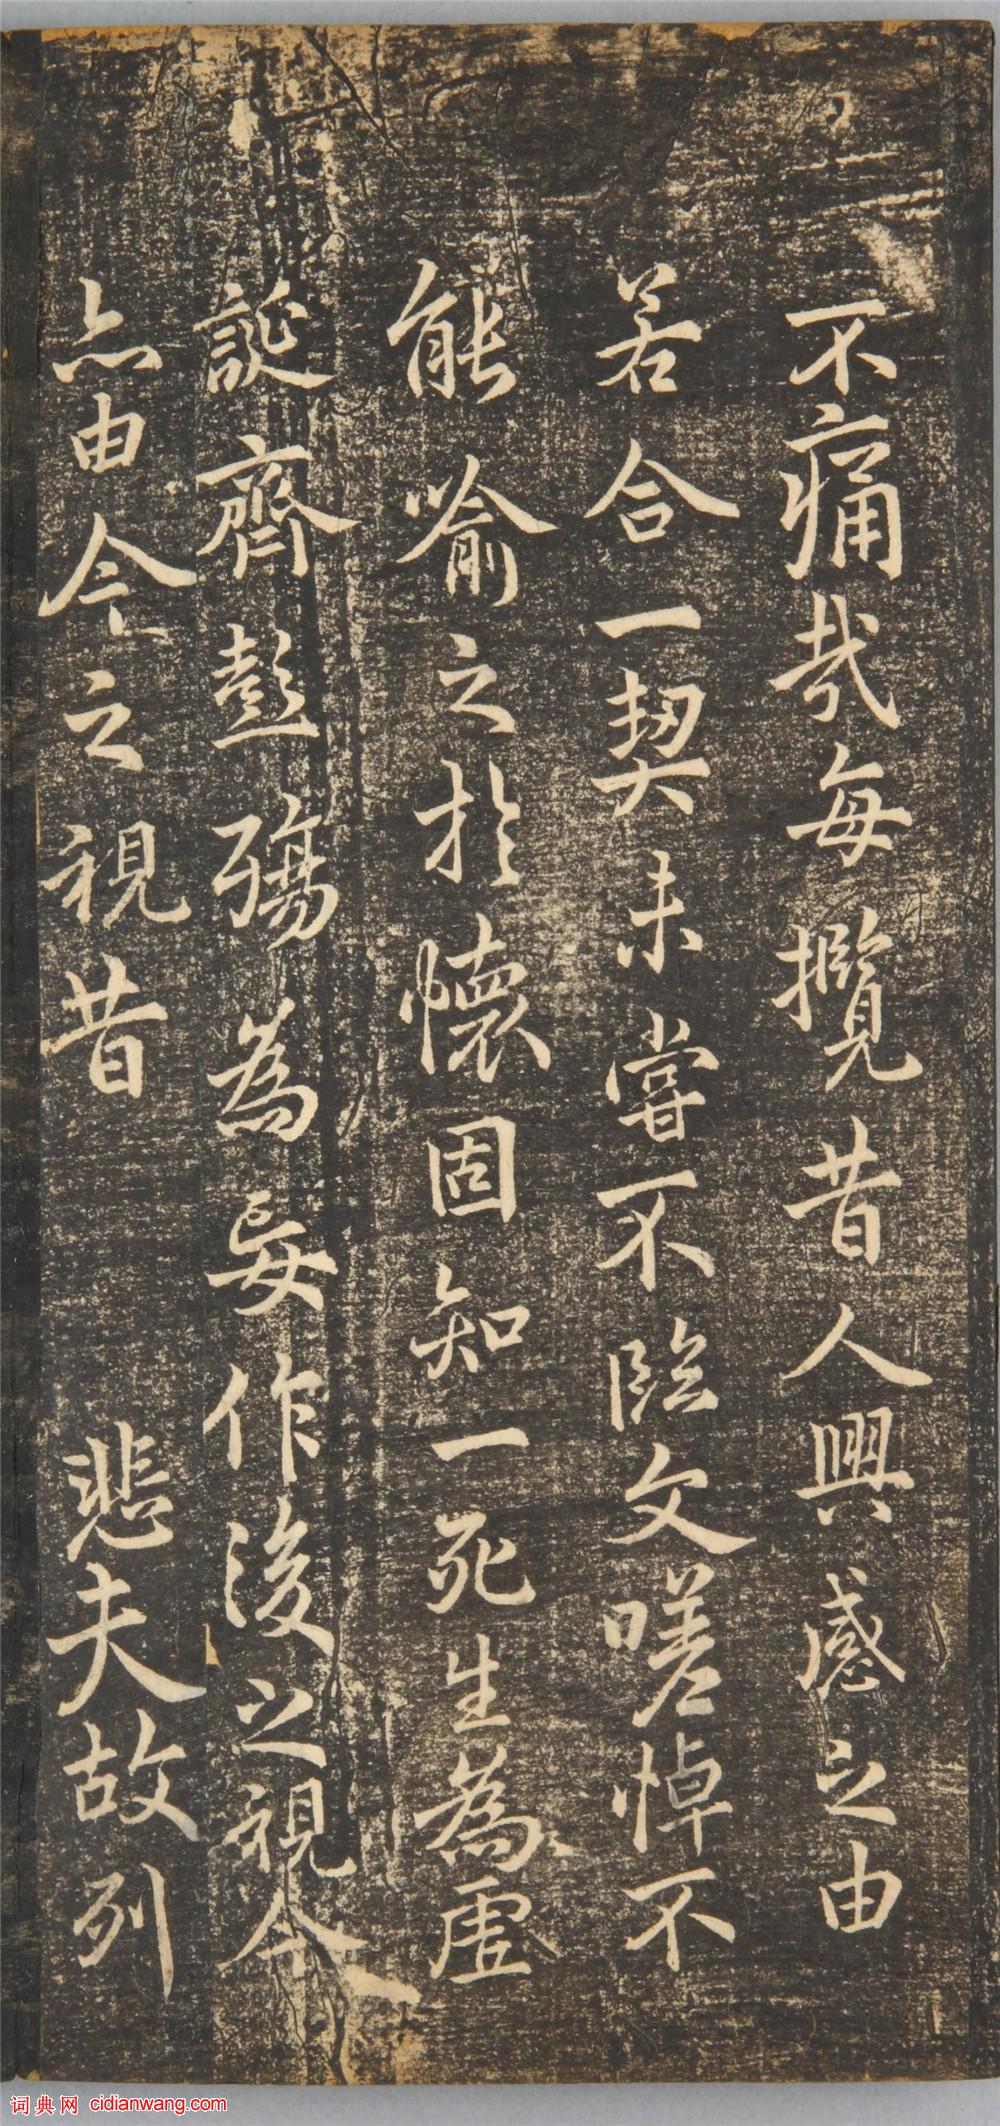 不痛哉每攬昔人興感之由
若合一契未嘗不臨文嗟悼不
能喻之於懷固知一死生為虛
誕齊彭殤為妄作後之視今
亦由今之視昔 悲夫故列
词典网 cidianwang.com